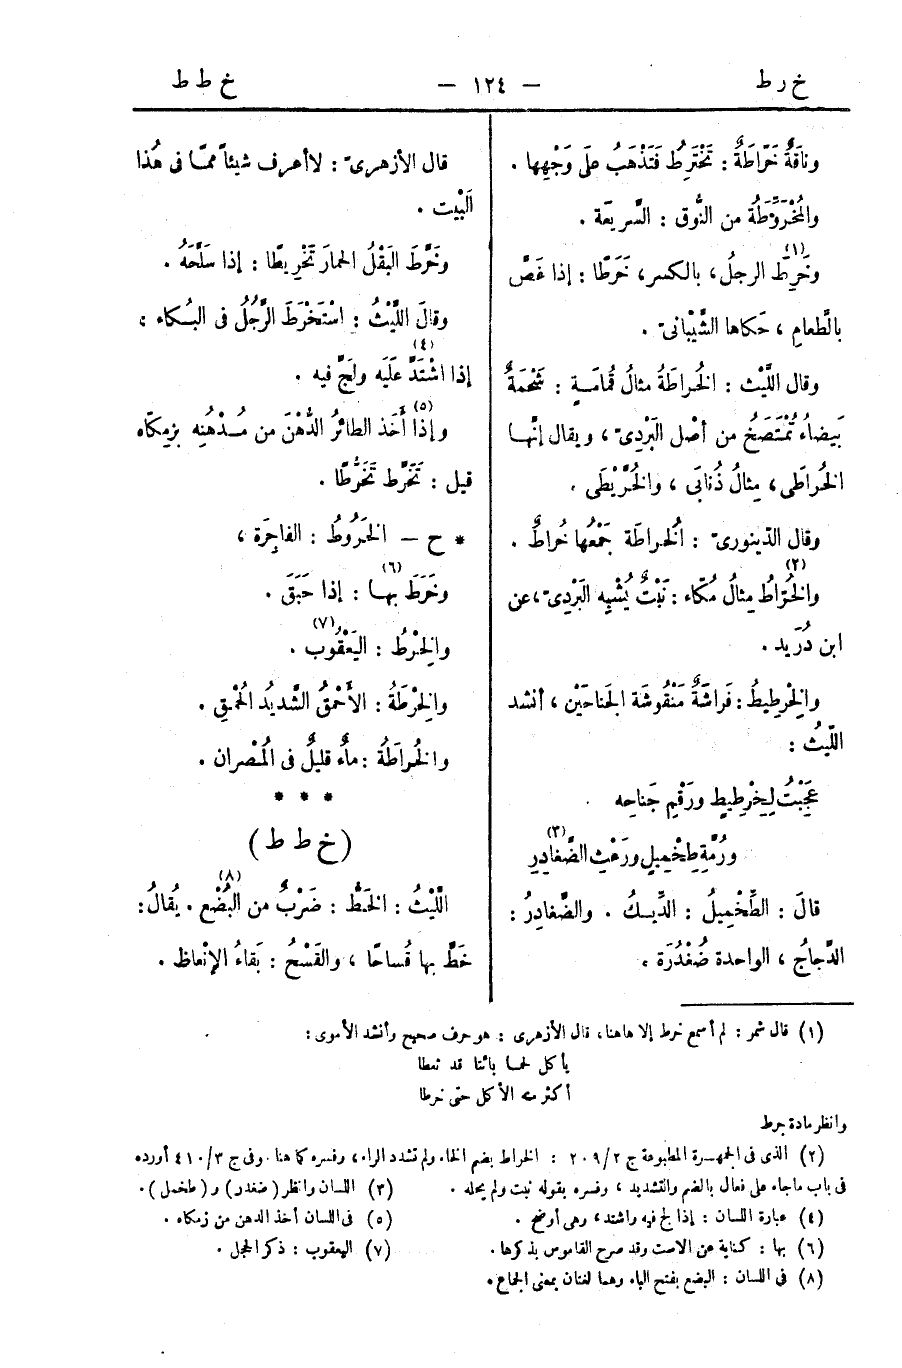 خ ر ط — ١٢٤ — خ ط ط
وناقَةٌ خَرَّاطَةٌ : تَخْتَرِطُ فَتَذْهَبُ علَى وَجْهِها .
والمُخْرَوِّطَةُ من النُّوق : السَّرِيعَة .
وخَرِطَ (١) الرجلُ، بالكسر، خَرَطًا : إذا غَصَّ
بالطَّعامِ ، حَكاها الشَّيْبانىّ .
وقال اللَّيْث : الخُراطَةُ مثالُ ثُمامَةٍ : شَحْمَةٌ
بَيضاءُ تُمْتَصَخُ من أصْل البَرْدِىّ ، ويقال إنَّها
الخُراطَى، مِثالُ ذُنابَى ، والخُرَّيْطَى .
وقال الدّينورىّ : الخُراطَة جَمْعُها خُراطٌ .
والخُرّاطُ (٢) مِثالُ مُكّاء : نَبْتٌ يُشْبِه البَرْدِىّ ،عن
ابن دُرَيد .
والخِرْطِيطُ : فَراشَةٌ مَنْقُوشَة الجَناحَيْن ، أنشد
اللّيثُ :
عَجِبْتُ لِخِرْطِيطٍ ورَقْمِ جَناحِه
ورُمَّةِ طِخْمِيلٍ ورَعْثِ الضَّغادِرِ (٣)
قالَ : الطِّخْمِيلُ : الدِّيكُ . والضَّغادِرُ :
الدَّجاجُ ، الواحدة ضُغْدُرَة .
قال الأزهرىّ : لاأعرف شيئاً ممّا فى هٰذا
البَيْت .
وخَرَّطَ البَقْلُ الحمارَ تَخْرِيطًا : إذا سَلَّحَهُ .
وقالَ اللَّيْثُ : اسْتَخْرَطَ الرَّجُلُ فى البُكاء :
إذا اشْتَدَّ (٤) عَلَيه ولَجَّ فيه .
وإذا (٥) أَخَذ الطائرُ الدُّهْنَ من مُدْهُنِه بزِمِكّاه
قيل : تَخَرَّط تَخَرُّطًا .
* ح — الخَرُوطُ : الفاجِرَة ،
وخَرَطَ بها (٦) : إذا حَبَقَ .
والخِرْطُ : اليَعْقُوب (٧) .
والخِرْطَةُ : الأَحْمَقُ الشَّديدُ الحُمْقِ .
والخُراطَةُ : ماءٌ قليلٌ فى المُصْران .
* * *
(خ ط ط)
اللَّيْثُ : الخَطُّ : ضَرْبٌ من البُضْعِ (٨) . يُقالُ :
خَطَّ بها قُساحًا ، والقَسْحُ : بَقاءُ الإنْعاظ .
(١) قال شمر : لم أسمع خرط إلا هاهنا، قال الأزهرى : هو حرف صحيح وأنشد الأموى :
يأكل لحما بائتا قد ثعطا
أكثر منه الأكل حتى خرطا
وانظر مادة جرط
(٢) الذى فى الجمهرة المطبوعة ج ٢/ ٢٠٩ : الخراط بضم الخاء ولم تشدد الراء، وفسره كما هنا . وفى ج ٣/ ٤١٠ أورده
فى باب ماجاء على فعال بالضم والتشديد ، وفسره بقوله نبت ولم يحله . (٣) اللسان وانظر (ضغدر) و (طخمل) .
(٤) عبارة اللسان : إذا لج فيه واشتد، وهى أوضح . (٥) فى اللسان أخذ الدهن من زمكاه .
(٦) بها : كناية عن الاست وقد صرح القاموس بذكرها. (٧) اليعقوب : ذكر الحجل .
(٨) فى اللسان : البضع بفتح الباء وهما لغتان بمعنى الجماع .